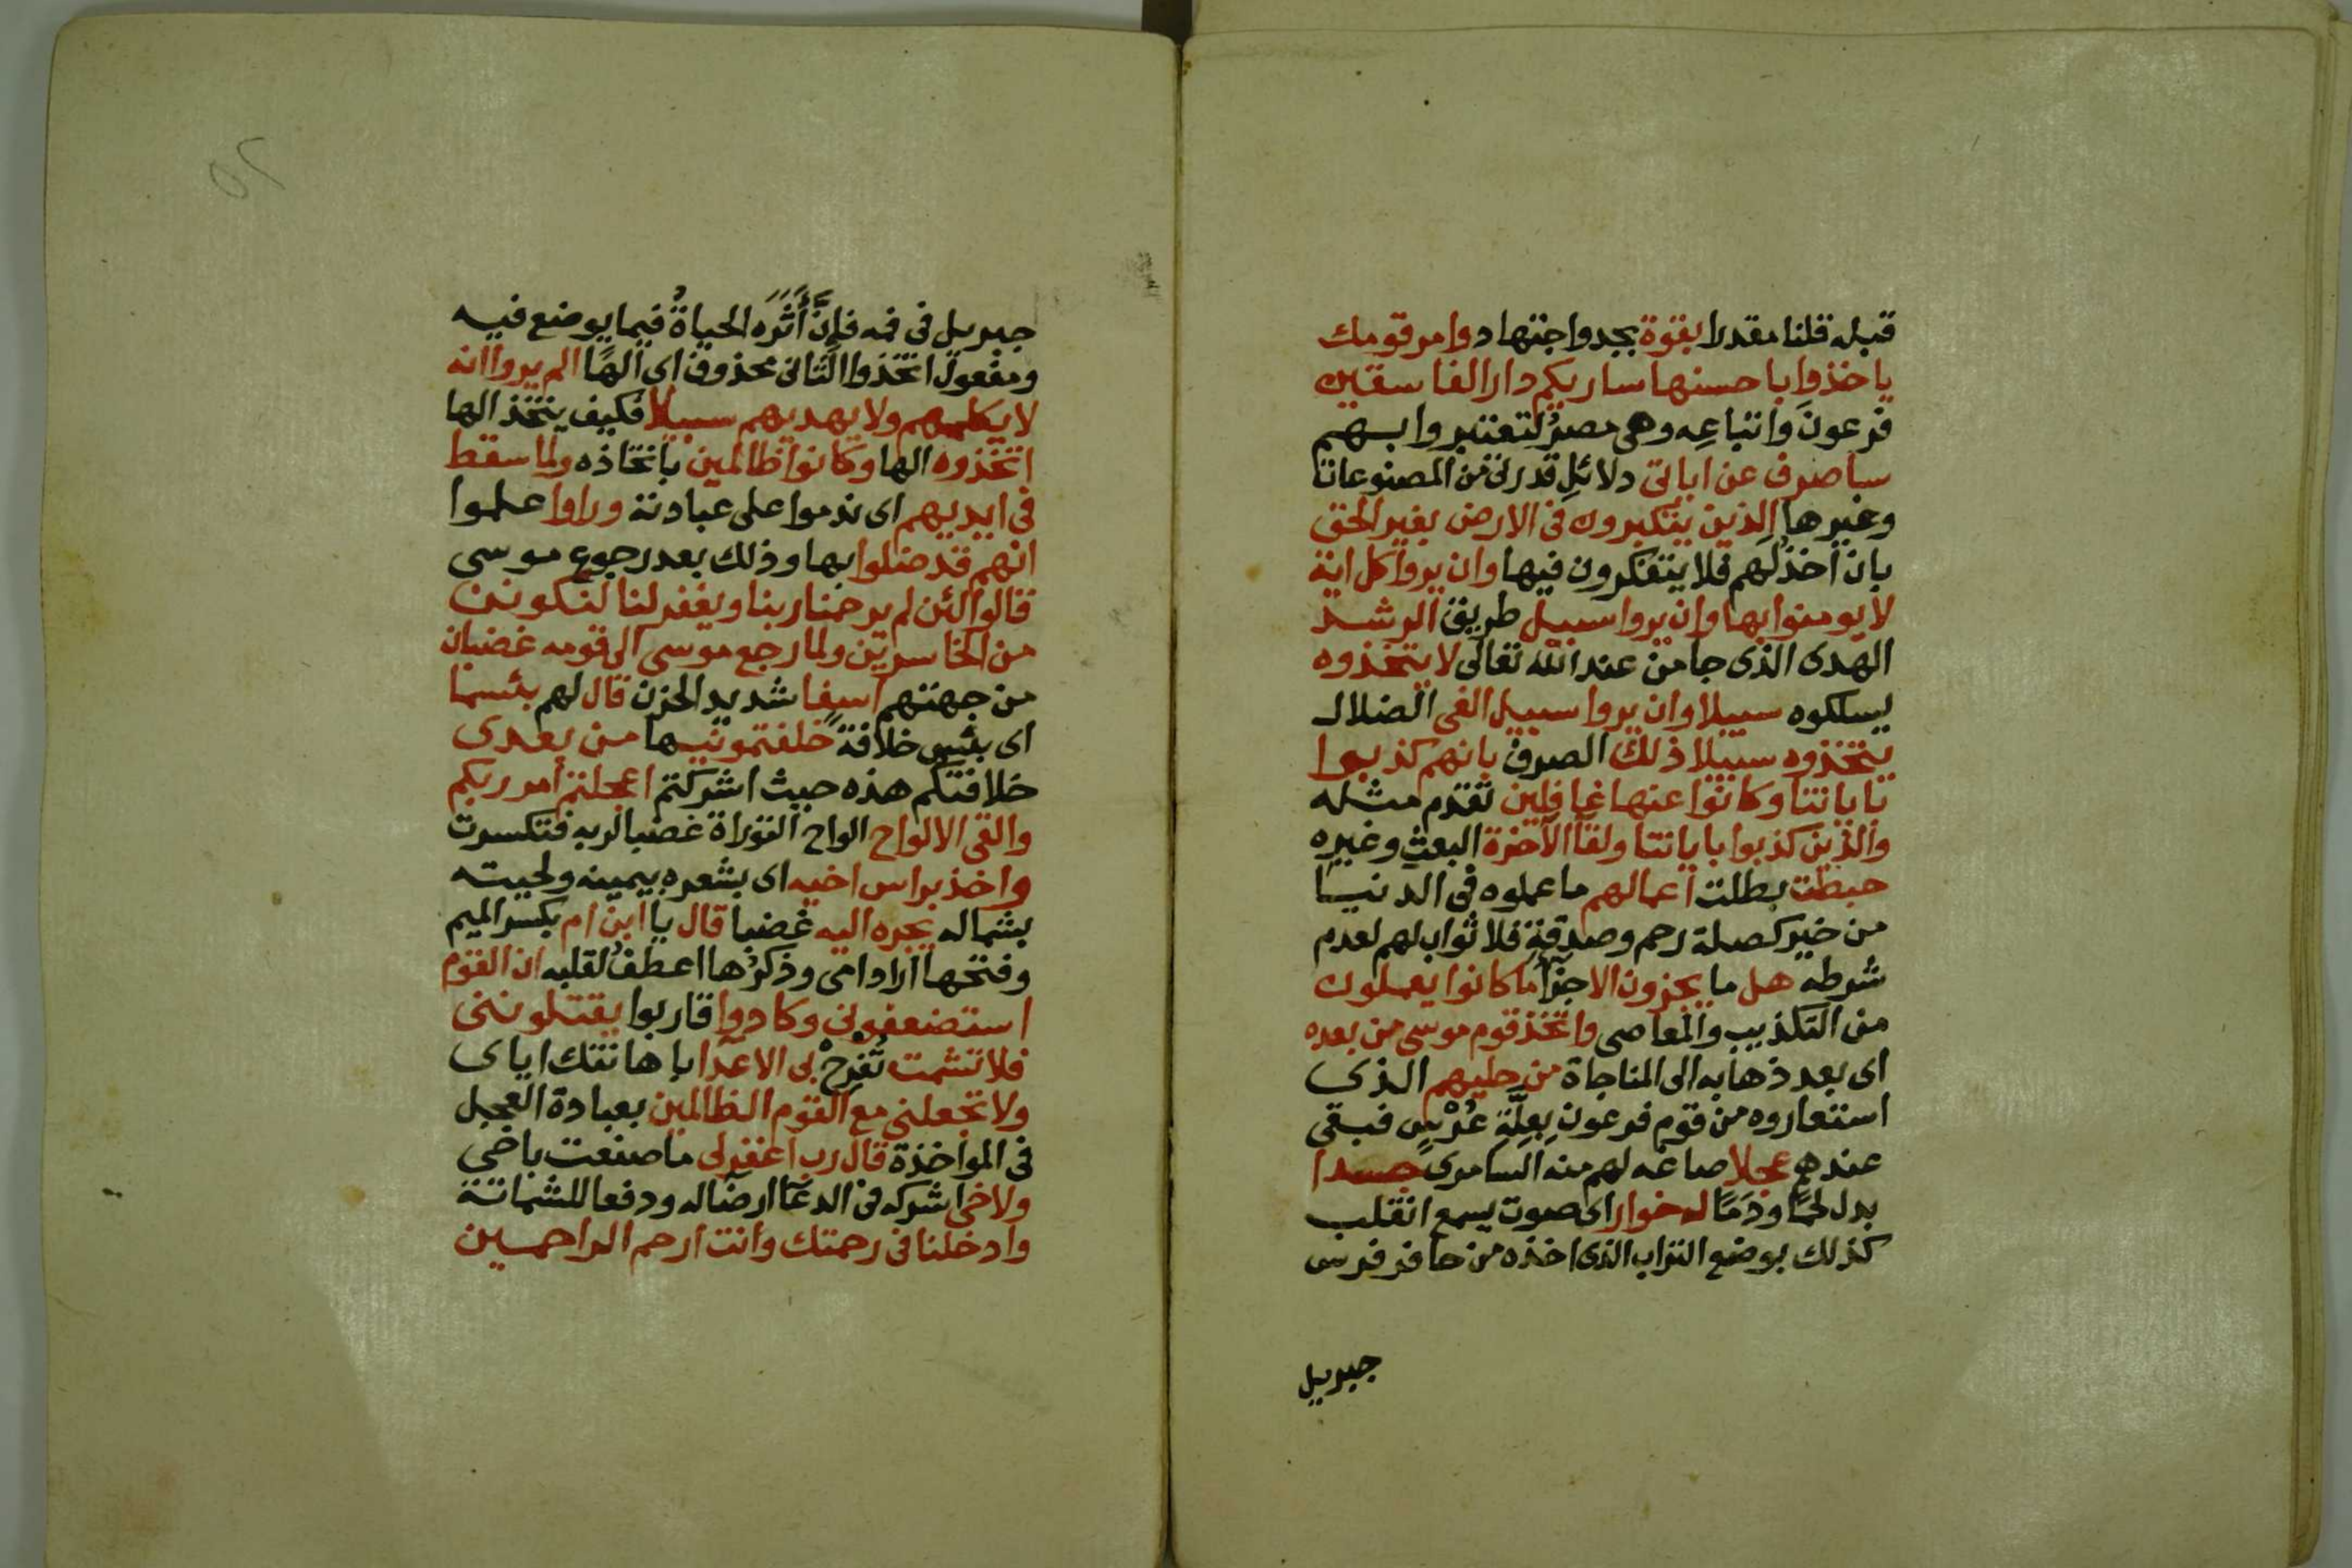 قبله قلنا مقدرا بقوة بجد واجتهاد وامر قومك
ياخذوا باحسنها ساريكم دار الفاسقين
فرعونَ واتباعِه وهى مصرُ لتعتبروا بهم
ساصرف عن اياتى دلائلِ قدرتى من المصنوعات
وغيرها الذين يتكبرون فى الارض بغير الحق
بان اخذُلَهم فلا يتفكرون فيها وان يروا كل اية
لا يومنوا بها وان يروا سبيل طريق الرشد
الهدى الذى جا من عند الله تعالى لا يتخذوه
يسلكوه سبيلا وان يروا سبيل الغى الضلال
يتخذوه سبيلا ذلك الصرف بانهم كذبوا
باياتنا وكانوا عنها غافلين تقدم مثله
والذين كذبوا باياتنا ولقآ الآخرة البعث وغيره
حبطت بطلت اعمالهم ما عملوه فى الدنيا
من خير كصلة رحم وصدقةٍ فلا ثواب لهم لعدم
شرطه هل ما يجزون الا جزآ ما كانوا يعملون
من التكذيب والمعاصى واتخذ قوم موسى من بعده
اى بعد ذهابه الى المناجاة من حليهم الذى
استعاروه من قوم فرعون بِعِلّةِ عُرْسٍ فبقى
عندهم عجلا صاغه لهم منه السامرى جسدا
بدل لحمًا ودَمًا له خوار اى صوت يسمع انقلب
كذلك بوضع التراب الذى اخذه من حافر فرس
جبريل
جبريل فى فمه فانَّ أَثَرَه الحياةُ فيما يوضع فيه
ومفعول اتخذوا الثانى محذوف اى الهًا الم يروا انه
لا يكلمهم ولا يهديهم سبيلا فكيف يتخذ الها
اتخذوه الها وكانوا ظالمين باتخاذه ولما سقط
فى ايديهم اى ندموا على عبادته وراوا علموا
انهم قد ضلوا بها وذلك بعد رجوع موسى
قالوا لئن لم يرحمنا ربنا ويغفر لنا لنكونن
من الخاسرين ولما رجع موسى الى قومه غضبان
من جهتهم اسفا شديد الحزن قال لهم بئسما
اى بئس خلافةً خلفتمونيها من بعدى
خلافتكم هذه حيث اشركتم اعجلتم امر ربكم
والقى الالواح الواح التوراة غضبا لربه فتكسرت
واخذ براس اخيه اى بشعره بيمينه ولحيته
بشماله يجره اليه غضبا قال يا ابن ام بكسر الميم
وفتحها اراد امى وذكرُها اعطفُ لقلبه ان القوم
استضعفونى وكادوا قاربوا يقتلوننى
فلا تشمت تُفْرِحْ بى الاعدا باهانتك اياى
ولا تجعلنى مع القوم الظالمين بعبادة العجل
فى المواخذة قال رب اغفر لى ما صنعت باخى
ولاخى اشركه فى الدعآ ارضآ له ودفعا للشماتة
وادخلنا فى رحمتك وانت ارحم الراحمين